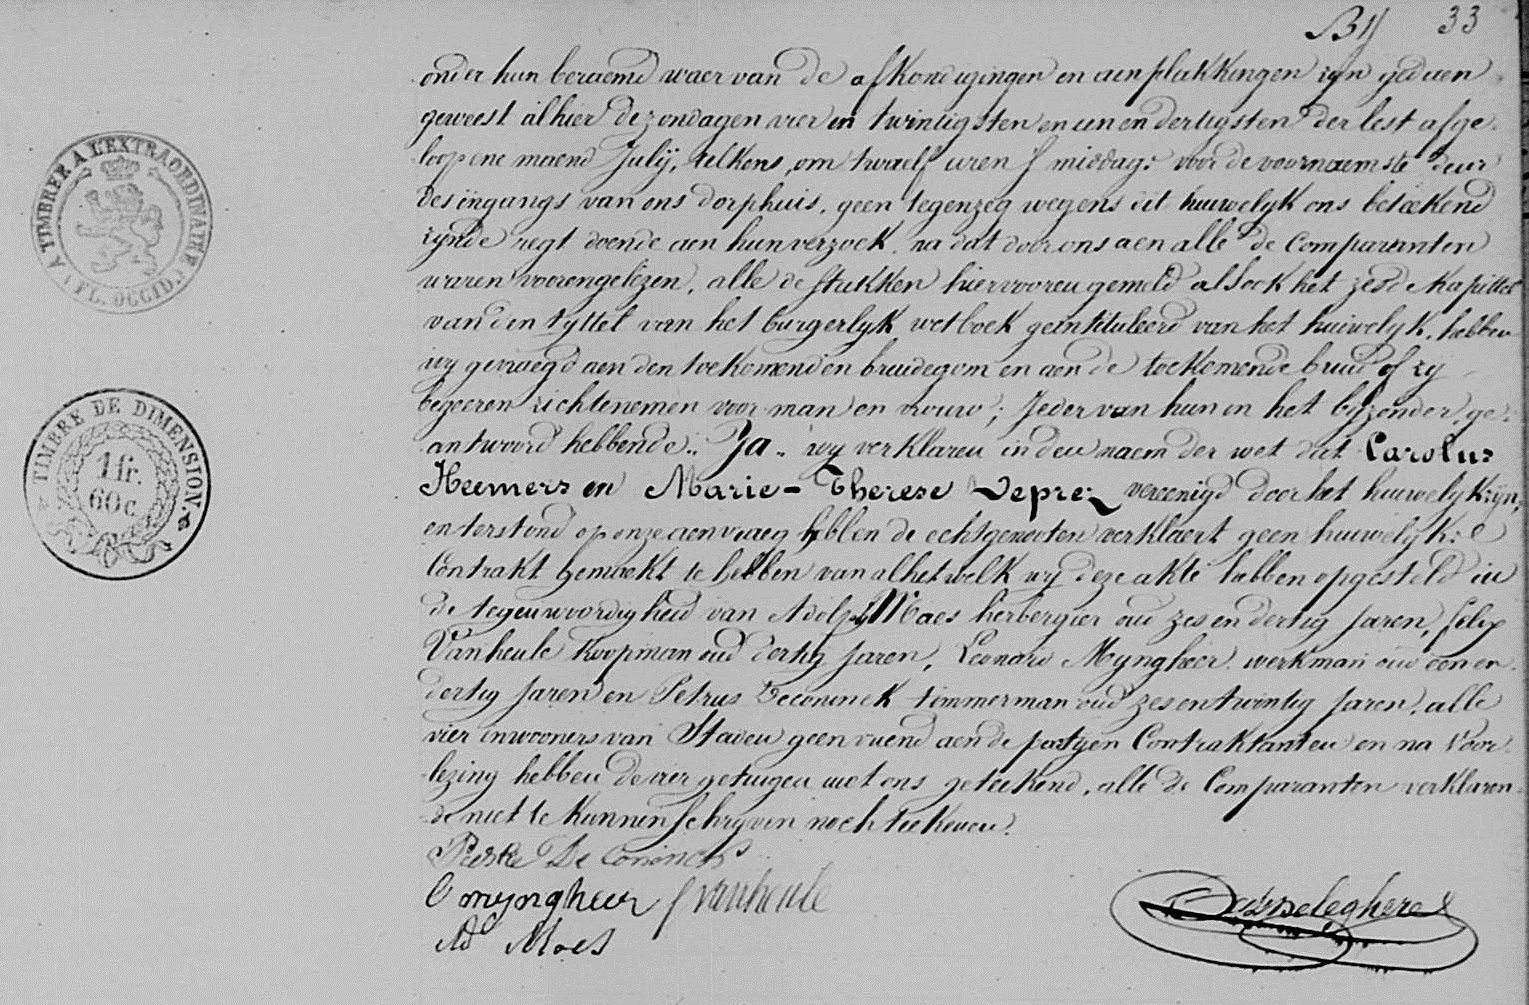 By 33
A TIMBRER A L'EXTRAORDINAIRE
FL. OCCID.
TIMBRE DE DIMENSION.
1 fr.
60 c.
onder hun beraemd waer van de afkondigingen en aenplakkingen zyn gedaen
geweest alhier de zondagen vier en twintigsten en een en dertigsten der lest afge-
loopene maend Julij, telkens, om twaelf uren s' middags voor de voornaemste deur
des ingangs van ons dorphuis, geen tegenzeg wegens dit huuwelyk ons beteekend
zynde regt doende aen hun verzoek. na dat door ons aen alle de Comparanten
waren voorengelezen, alle de stukken hiervooren gemeld alsook het zesde Kapittel
van den tyttel van het burgerlyk wetboek geintituleerd van het huiwelyk. hebben
wy gevraegd aen den toekomenden bruidegom en aen de toekomende bruid of zy
begeeren zich te nemen voor man en vrouw; Jeder van hun in het byzonder ge-
antwoord hebbende.. Ja.. wy verklaren in den naem der wet dat Carolus
Heemers en Marie-Therese Deprez vereenigd door het huuwelyk zyn,
en terstond op onze aenvraeg hebben de echtgenooten verklaert geen huiwelyk:e
Contrakt gemaekt te hebben van al hetwelk wy deze akte hebben opgesteld in
de tegenwoordigheid van Adolph Maes herbergier oud zes en dertig Jaren, felix
Vanheule Koopman oud dertig Jaren, Leonard Myngheer werkman oud een en
dertig Jaren en Petrus Deconinck timmerman oud zes en twintig Jaren, alle
vier inwooners van Staden geen vriend aen de partyen Contraktanten en na Voor-
lezing hebben de vier getuigen met ons geteekend, alle de Comparanten verklaren-
de niet te Kunnen schryven noch teekenen.
De Coninck
myngheer f vanheule
Ad Maes